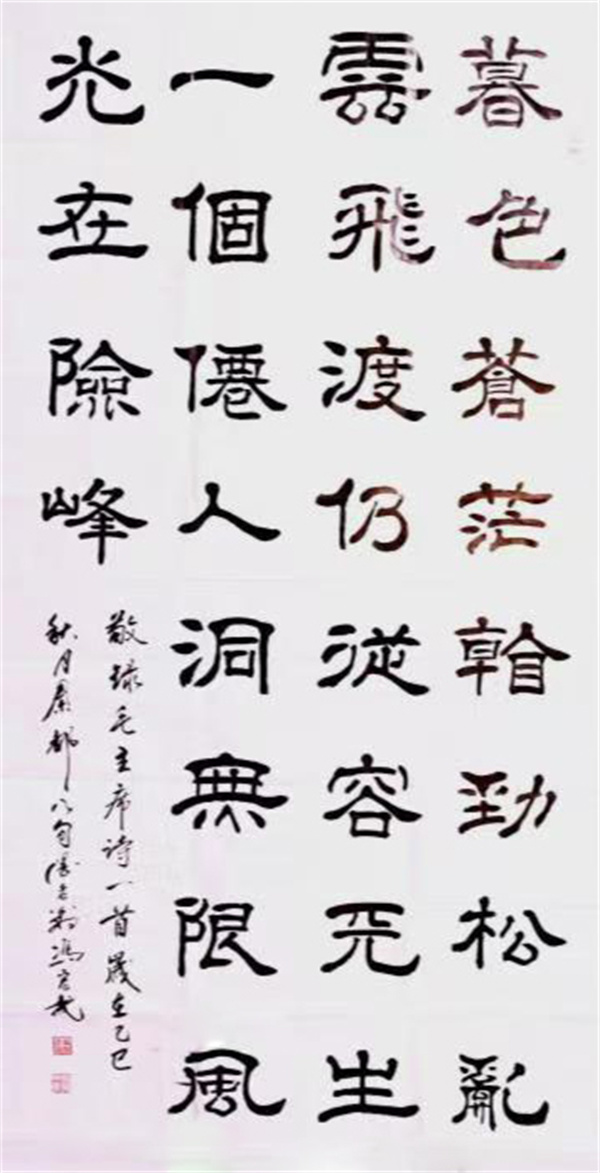 暮色蒼茫看勁松亂
雲飛渡仍從容天生
一個僊人洞無限風
光在險峰
敬録毛主席诗一首歲在乙巳
秋月秦都八旬